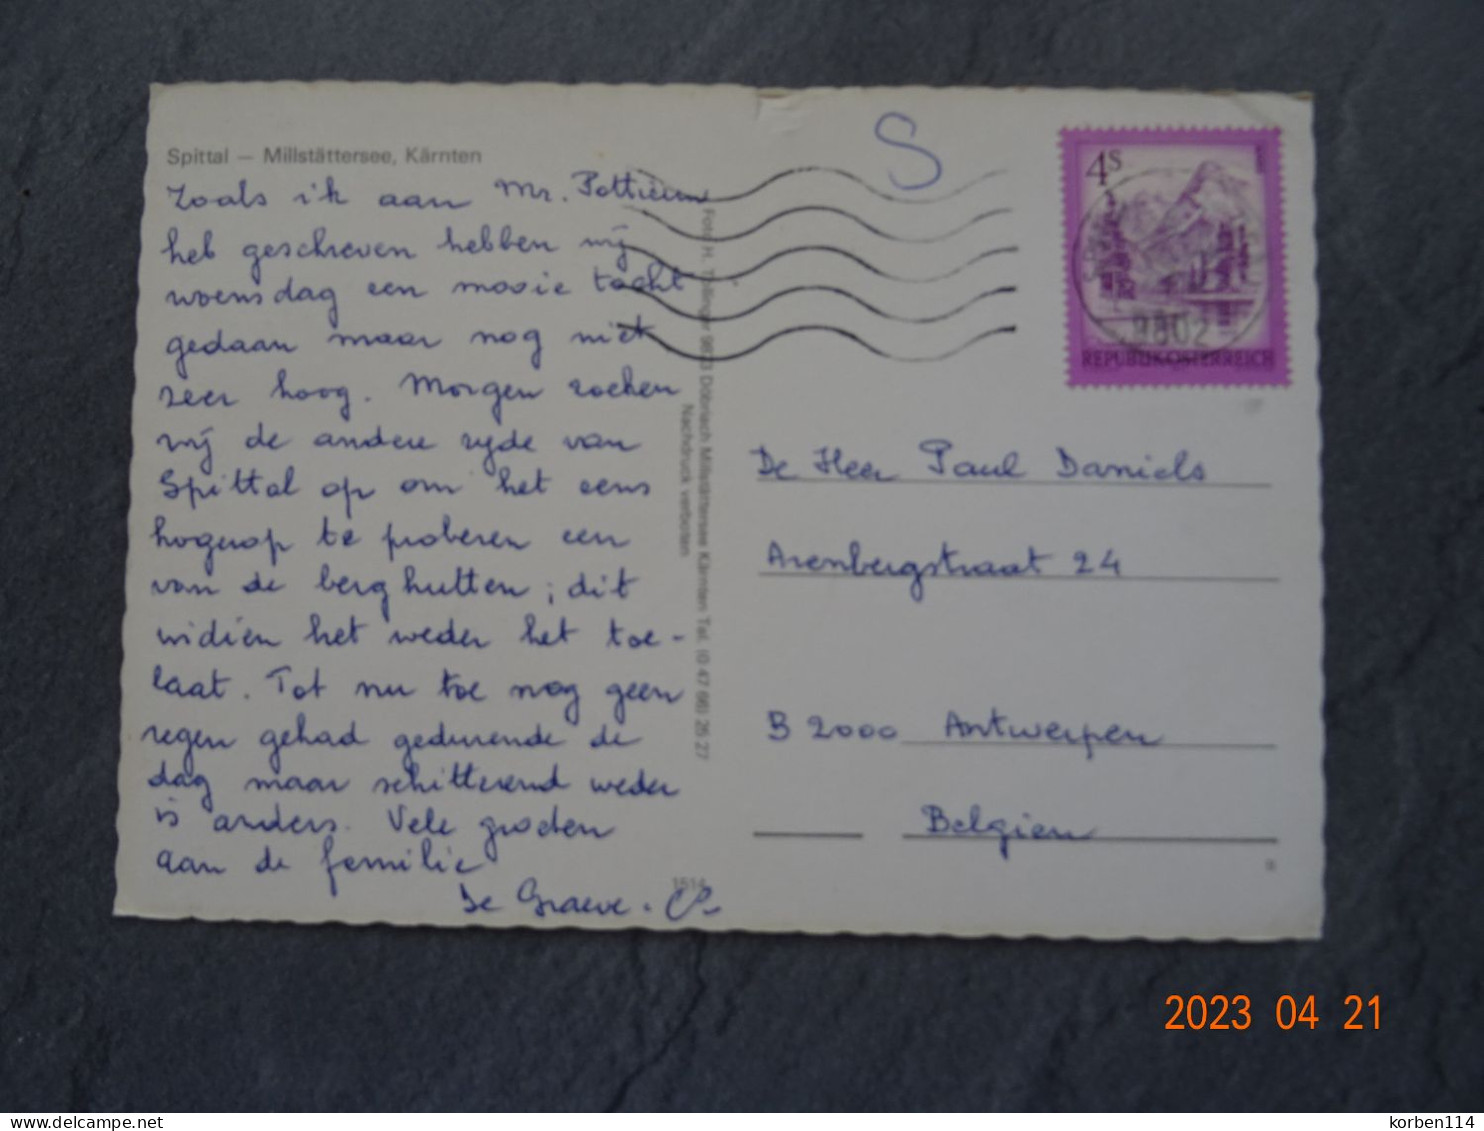 Spittal — Millstättersee, Kärnten
Zoals ik aan Mr. Pottieuw
heb geschreven hebben wij
woensdag een mooie tocht
gedaan maar nog niet
zeer hoog. Morgen zoeken
wij de andere zijde van
Spittal op om het eens
hogerop te proberen een
van de berghutten; dit
indien het weder het toe-
laat. Tot nu toe nog geen
regen gehad gedurende de
dag maar schitterend weder
is anders. Vele groeten
aan de familie
De Graeve.
Foto H. 9873 Döbriach Millstättersee Kärnten Tel. (0 47 66) 25 27
Nachdruck verboten
1514
S
4S
9802
REPUBLIK ÖSTERREICH
De Heer Paul Daniels
Arenbergstraat 24
B 2000 Antwerpen
Belgien
2023 04 21
korben114